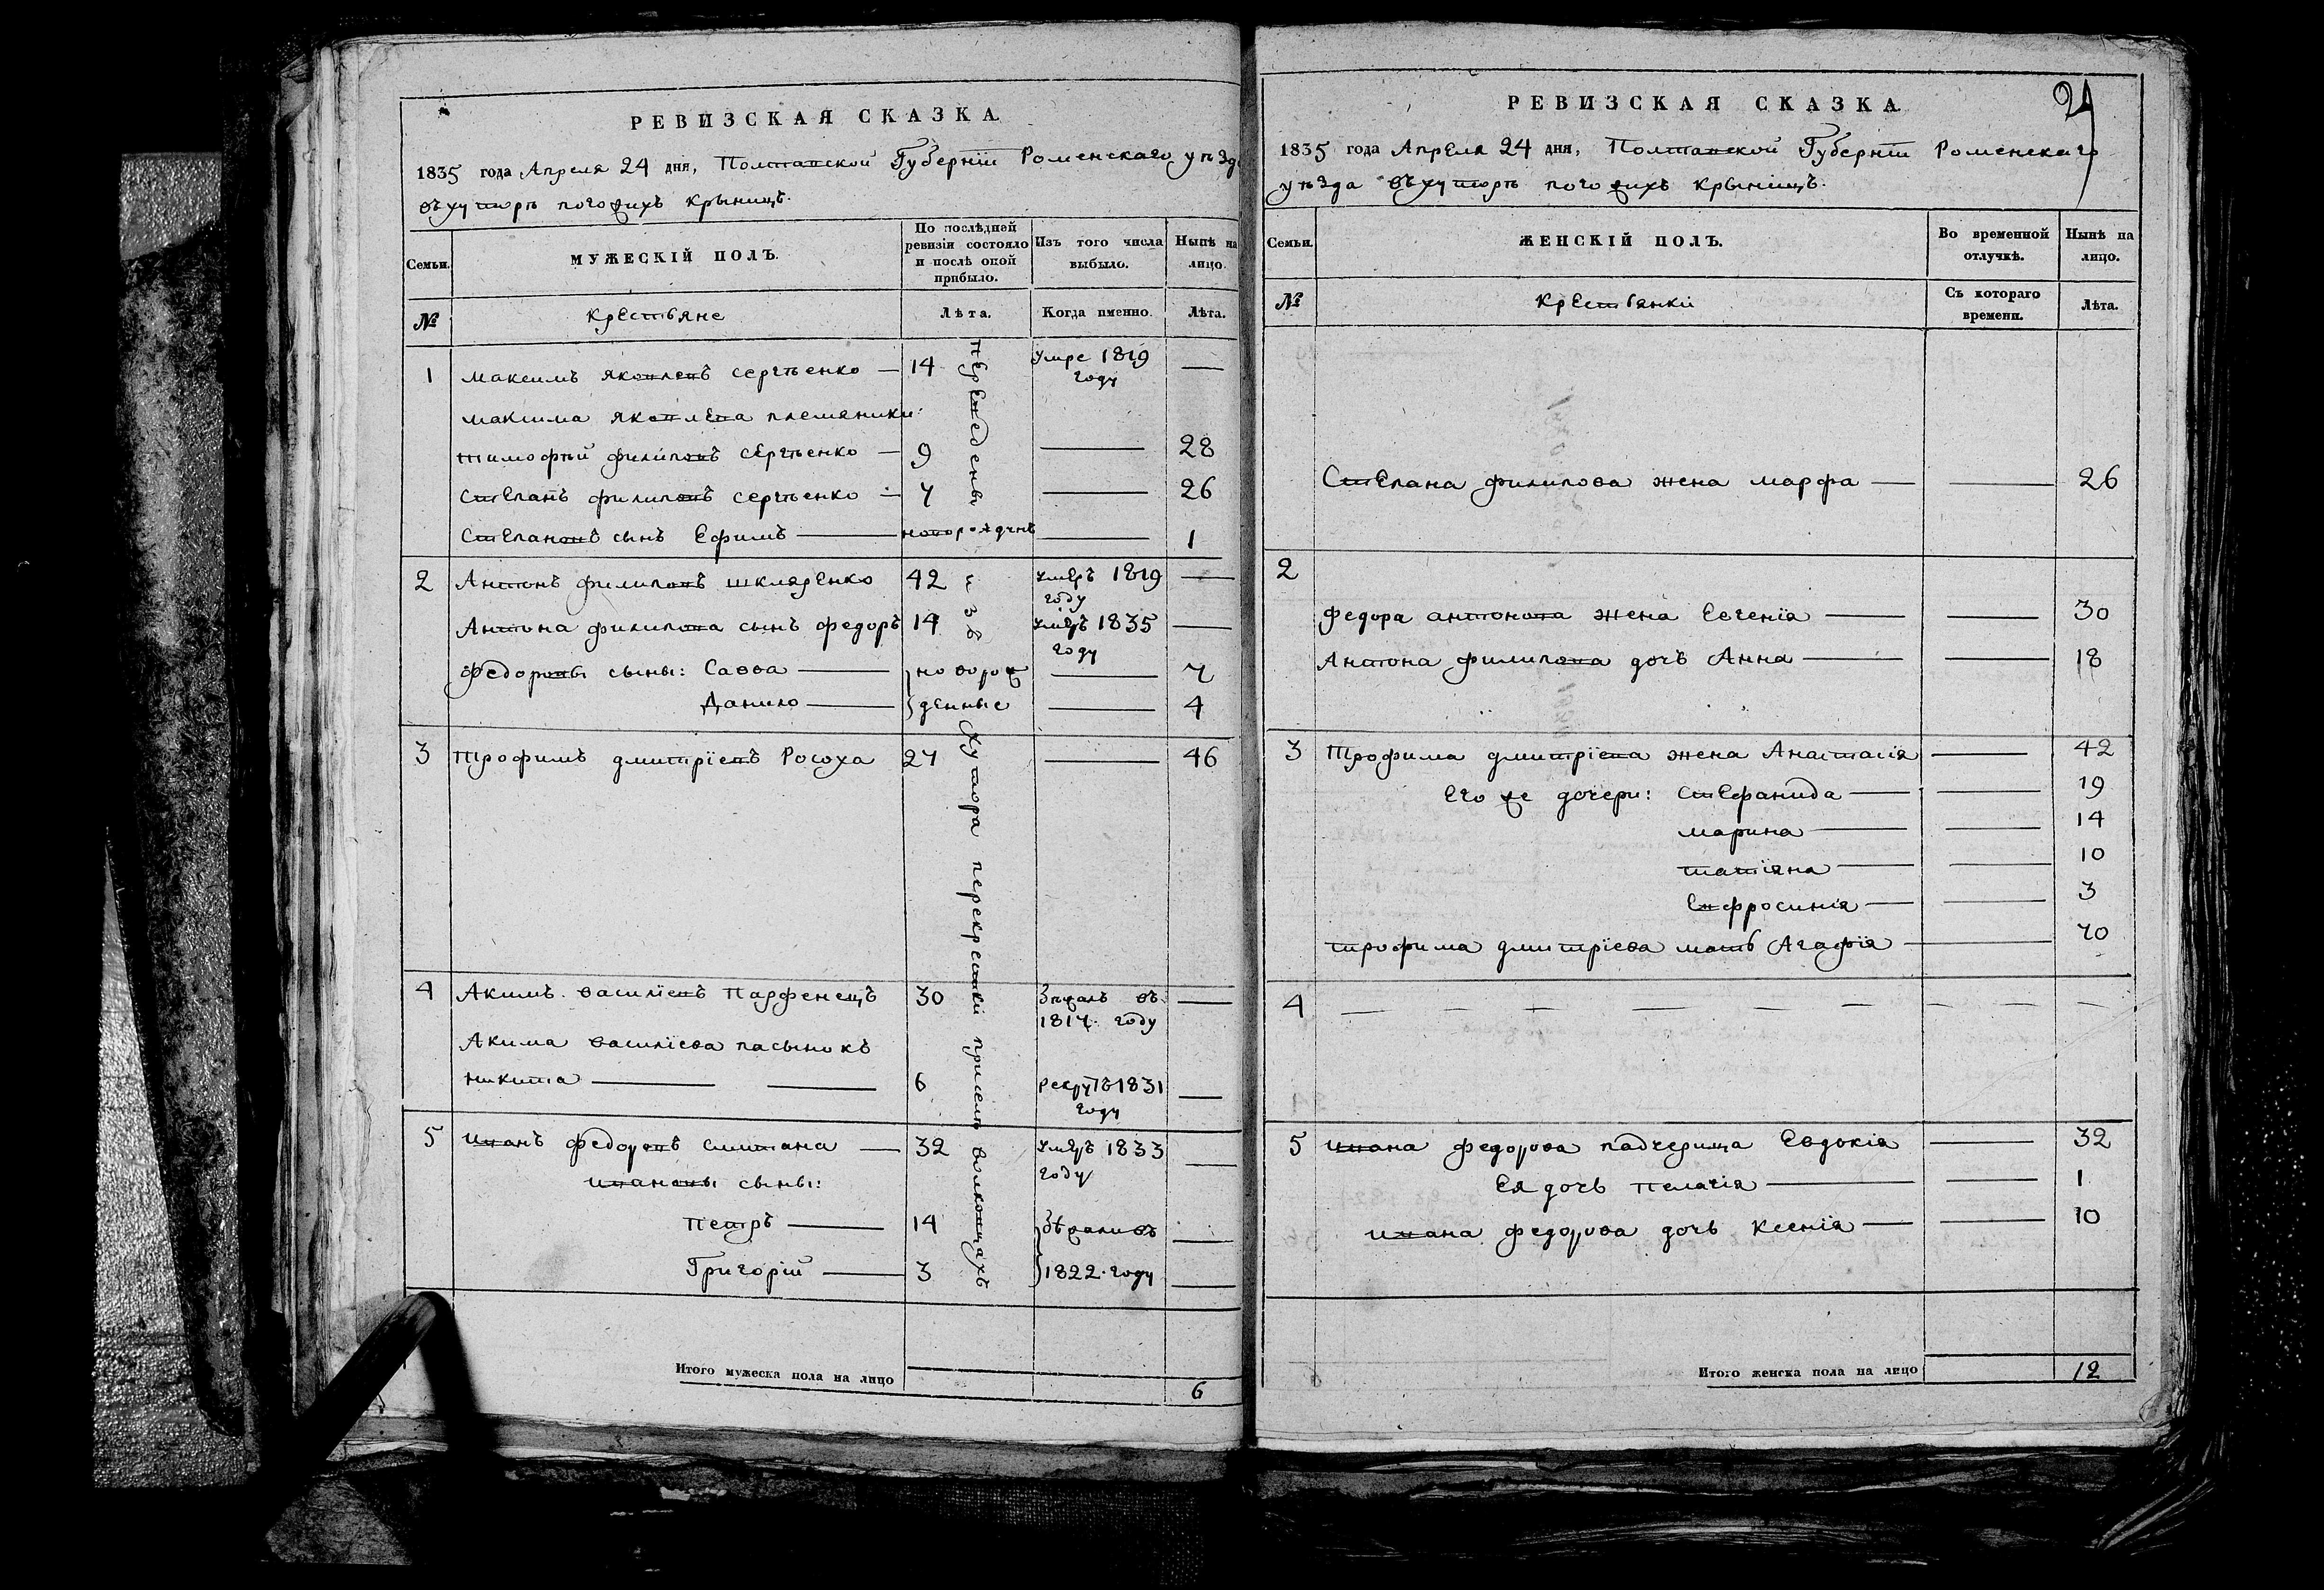 РЕВИЗСКАЯ СКАЗКА
1835 года Апреля 24 дня, Полтавской Губернїи Роменскаго уѣзда
въ хуторѣ погожихъ крыницъ.
Семьи.
МУЖЕСКІЙ ПОЛЪ.
По послѣдней ревизіи состояло и послѣ оной прибыло.
Изъ того числа выбыло.
Нынѣ на лицо.
№
крестьяне
Лѣта.
Когда именно.
Лѣта.
1 максимъ яковлевъ сергѣенко — 14 умре 1819 году —
максима яковлева племяники:
тимофѣй филиповъ сергѣенко — 9 — 28
Степанъ филиповъ сергѣенко — 7 — 26
Степановъ сынъ Ефимъ — новорожденъ — 1
2 Антонъ филиповъ шкляренко 42 умеръ 1819 году —
Антона филипова сынъ федоръ 14 умеръ 1835 году —
Федоровы сыны: Савва — новорож — 7
Данило — денные — 4
3 Трофимъ дмитрїевъ Росоха 27 — 46
4 Акимъ василїевъ Парфенецъ 30 бѣжалъ въ 1817. году —
Акима василїева пасынокъ
никита — 6 рекрутъ 1831 году —
5 иванъ федоровъ смитана — 32 умеръ 1833 году —
ивановы сыны:
Петръ — 14 бѣжали въ —
Григорїй — 3 1822. году —
переведены изъ Хутора перекрестки при селѣ волковцахъ
Итого мужеска пола на лицо 6
РЕВИЗСКАЯ СКАЗКА
1835 года Апреля 24 дня, Полтавской Губернїи Роменскаго
уѣзда въ хуторѣ погожихъ крыницъ.
Семьи.
ЖЕНСКІЙ ПОЛЪ.
Во временной отлучкѣ.
Нынѣ на лицо.
№
крестьянки
Съ котораго времени.
Лѣта.
Степана филипова жена марфа — — 26
2
Федора антонова жена Евгенїя — — 30
Антона филипова дочь Анна — — 18
3 Трофима дмитрїева жена Анастасїя — 42
Его же дочери: стефанида — — 19
марина — — 14
татїяна — — 10
Евфросинїя — — 3
трофима дмитрїева мать Агафїя — 70
4 — — — — — — — — —
5 ивана федорова падчерица Евдокїя — 32
Ея дочь пелагїя — — 1
ивана федорова дочь ксенїя — — 10
Итого женска пола на лицо 12